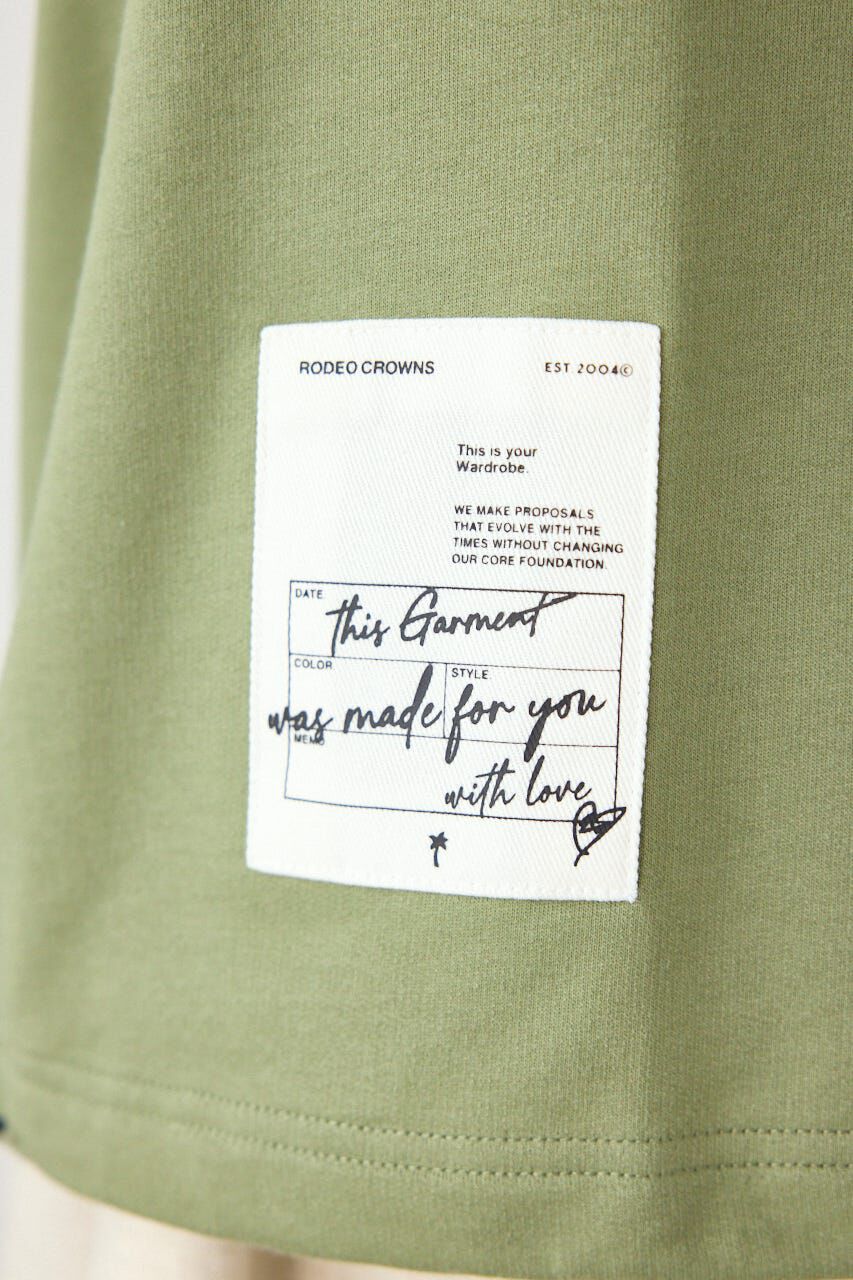 RODEO CROWNS EST 2004©
This is your
Wardrobe.
WE MAKE PROPOSALS
THAT EVOLVE WITH THE
TIMES WITHOUT CHANGING
OUR CORE FOUNDATION.
DATE
this Garment
COLOR STYLE
was made for you
MEMO
with love